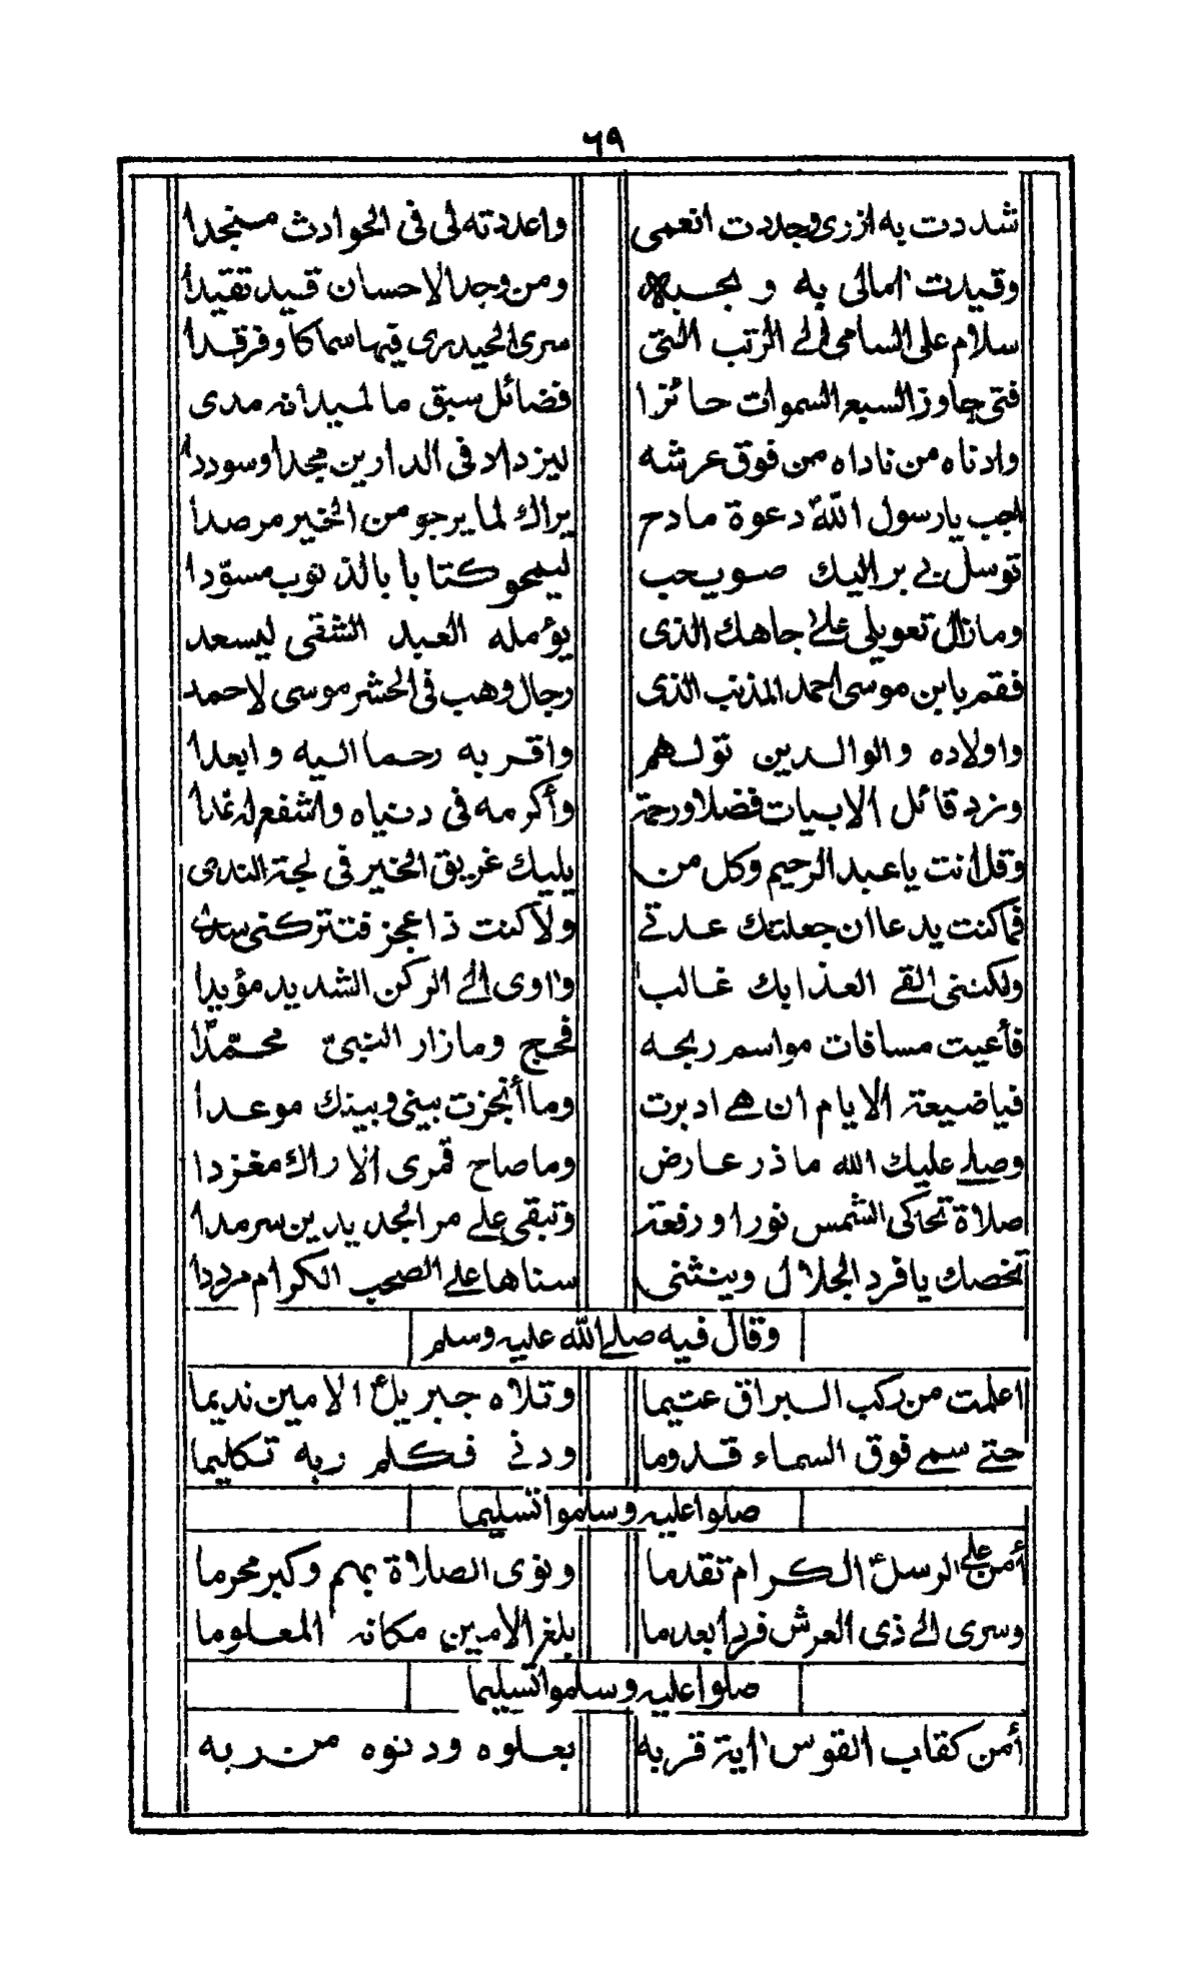 ٦٩
شددت به ازرى وجددت انعمى واعددته لى فى الحوادث منجدا
وقيدت امالى به و بحبه ومن وجد الاحسان قيد تقيدا
سلام على السامى الى الرتب التى سرى الحيدرى فيها سماكا وفرقدا
فتى جاوز السبع السموات حائزا فضائل سبق ما لميدانه مدى
وادناه من ناداه من فوق عرشه ليزداد فى الدارين مجدا وسوددا
اجب يا رسول الله دعوة مادح يراك لما يرجو من الخير مرصدا
توسل بى بر اليك صويحب ليمحو كتابا بالذنوب مسوّدا
ومازال تعويلى على جاهك الذى يؤمله العبد الشقى ليسعد
فقم يا بن موسى احمد المذنب الذى رجال وهب فى الحشر موسى لاحمد
واولاده والوالدين تولهم واقربه رحما اليه وابعدا
وزد قائل الابيات فضلا ورحمة وأكرمه فى دنياه واشفع له غدا
وقل انت يا عبد الرحيم وكل من يليك غريق الخير فى لجة الندى
فما كنت يدعا ان جعلتك عدتى ولا كنت ذا عجز فتتركنى سدى
ولكننى القى العذا بك غالب واوى الى الركن الشديد مؤيدا
فأعيت مسافات مواسم ربحه فحج وما زار النبىّ محمّدا
فيا ضيعة الايام ان هى ادبرت وما أنجزت بينى وبينك موعدا
وصلى عليك الله ما ذر عارض وما صاح قمرى الاراك مغردا
صلاة تحاكى الشمس نورا ورفعة وتبقى على مر الجديدين سرمدا
تخصك يا فرد الجلال وينثنى سناها على الصحب الكرام مرددا
وقال فيه صلى الله عليه وسلم
اعلمت من ركب البراق عتيما وتلاه جبريل الامين نديما
حتى سمى فوق السماء قدوما ودنى فكلم ربه تكليما
صلوا عليه وسلموا تسليما
أمن على الرسل الكرام تقدما ونوى الصلاة بهم وكبر محرما
وسرى الى ذى العرش فردا بعدما بلغ الامين مكانه المعلوما
صلوا عليه وسلموا تسليما
أمن كقاب القوس اية قربه بعلوه ودنوه من ربه